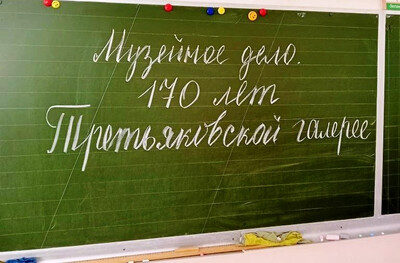 Музейное дело.
170 лет
Третьяковской галерее